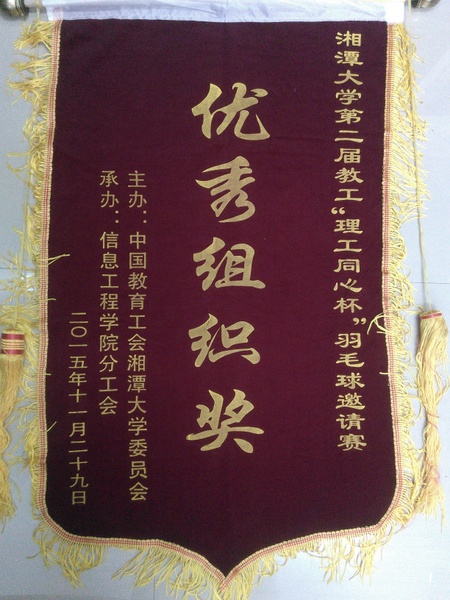 湘潭大学第二届教工“理工同心杯”羽毛球邀请赛
优秀组织奖
主办：中国教育工会湘潭大学委员会
承办：信息工程学院分工会
二〇一五年十一月二十九日